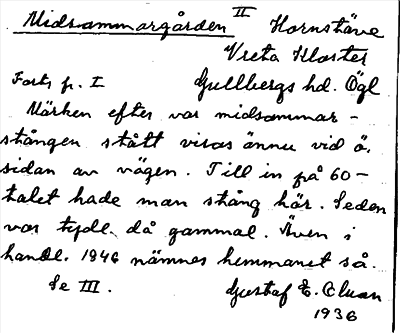 Midsommargården II Hornstäve
Vreta Kloster
Forts fr. I Gullbergs hd. Ögl
Märken efter var midsommar-
stången stått visas ännu vid ö.
sidan av vägen. Till in på 60-
talet hade man stång här. Seden
var tydl. då gammal. Även i
handl. 1846 nämnes hemmanet så.
Se III. Gustaf E. Cluan
1936